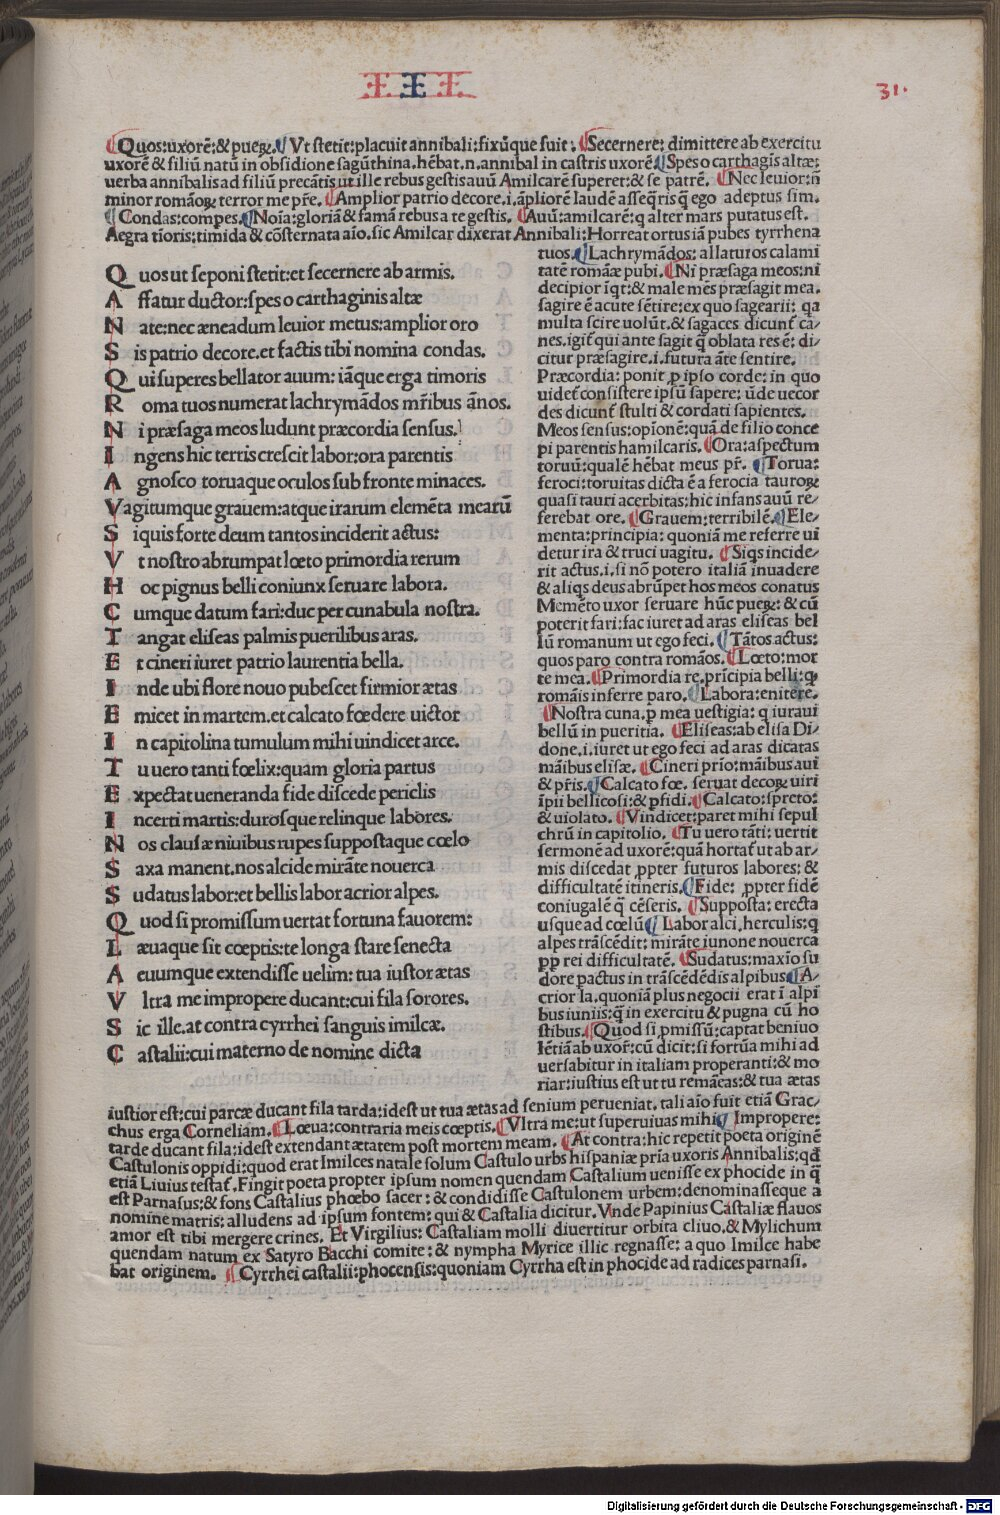 III.
31.
Quos:uxorē:&pueꝝ. Vt stetit:placuit annibali:fixūque fuit: Secernere:dimittere ab exercitu
uxorē & filiū natū in obsidione sagūthina.hēbat.n.annibal in castris uxorē. Spes o carthagīs altæ:
uerba annibalis ad filiū precātis ut ille rebus gestis auū Amilcarē superet:& se patrē. Nec leuior:ñ
minor romāoꝝ terror me pr̄e. Amplior patrio decore.i.āpliorē laudē asseq̄ris q̄ ego adeptus sim.
Condas:compes. Noīa:gloriā & famā rebus a te gestis. Auū:amilcarē:q alter mars putatus est.
Aegra tīoris:timida & cōsternata aīo.sic Amilcar dixerat Annibali:Horreat ortus iā pubes tyrrhena
tuos. Lachrymādos: allaturos calami
tatē romāæ pubi. Ni præsaga meos:ni
decipior īqt:& male mēs præsagit mea.
sagire ē acute sētire:ex quo sagearii: qa
multa scire uolūt.& sagaces dicunt̄ ca-
nes.igit̄ qui ante sagit q̄ oblata res ē: di-
citur præsagire.i.futura āte sentire.
Præcordia: ponit p ipso corde: in quo
uidet̄ consistere ipsū sapere: ūde uecor
des dicunt̄ stulti & cordati sapientes.
Meos sensus:opīonē:quā de filio conce
pi parentis hamilcaris. Ora:aspectum
toruū:qualē hēbat meus pr̄. Torua:
feroci:toruitas dicta ē a ferocia tauroꝝ
quasi tauri acerbitas:hic infans auū re-
ferebat ore. Grauem:terribilē. Ele-
menta:principia: quoniā me referre ui
detur ira & truci uagitu. Siqs incide-
rit actus.i.si nō potero italiā inuadere
& aliqs deus abrūpet hos meos conatus
Memēto uxor seruare hūc pueꝝ: & cū
poterit fari:fac iuret ad aras eliseas bel
lū romanum ut ego feci. Tātos actus:
quos paro contra romāos. Lœto:mor
te mea. Primordia re.prīcipia belli:q̄
romāis inferre paro. Labora:enitere.
Nostra cuna.p mea uestigia: q iuraui
bellū in pueritia. Eliseas:ab elisa Di-
done.i.iuret ut ego feci ad aras dicatas
māibus elisæ. Cineri prīo:māibus aui
& pr̄is. Calcato fœ. seruat decoꝝ uiri
īpii bellicosi:& pfidi. Calcato:spreto:
& uiolato. Vindicet:paret mihi sepul
chrū in capitolio. Tu uero tāti: uertit
sermonē ad uxorē:quā hortat̄ ut ab ar-
mis discedat ꝓpter futuros labores: &
difficultatē itineris. Fide: ꝓpter fidē
coniugalē q̄ cēseris. Supposta: erecta
usque ad cœlū Labor alci.herculis:q
alpes trāscēdit: mirāte iunone nouerca
ꝓp rei difficultatē. Sudatus:maxīo su
dore pactus in trāscēdēdis alpibus A-
crior la.quoniā plus negocii erat ī alpi
bus iuniis:q̄ in exercitu & pugna cū ho
stibus. Quod si pmissū:captat beniuo
lētiā ab uxor̄:cū dicit:si fortūa mihi ad
uersabitur in italiam properanti:& mo
riar:iustius est ut tu remāeas:& tua ætas
Quos ut seponi stetit:et secernere ab armis.
Affatur ductor:spes o carthaginis altæ
Nate:nec æneadum leuior metus:amplior oro
Sis patrio decore.et factis tibi nomina condas.
Qui superes bellator auum: iāque erga timoris
Roma tuos numerat lachrymādos mr̄ibus ānos.
Ni præsaga meos ludunt præcordia sensus.
Ingens hic terris crescit labor:ora parentis
Agnosco toruaque oculos sub fronte minaces.
Vagitumque grauem:atque irarum elemēta mearū
Siquis forte deum tantos inciderit actus:
Vt nostro abrumpat lœto primordia rerum
Hoc pignus belli coniunx seruare labora.
Cumque datum fari:duc per cunabula nostra.
Tangat eliseas palmis puerilibus aras.
Et cineri iuret patrio laurentia bella.
Inde ubi flore nouo pubescet firmior ætas
Emicet in martem.et calcato fœdere uictor
In capitolina tumulum mihi uindicet arce.
Tu uero tanti fœlix:quam gloria partus
Expectat ueneranda fide discede periclis
Incerti martis:durosque relinque labores.
Nos clausæ niuibus rupes suppostaque cœlo
Saxa manent.nos alcide mirāte nouerca
Sudatus labor:et bellis labor acrior alpes.
Quod si promissum uertat fortuna fauorem:
Læuaque sit cœptis:te longa stare senecta
Aeuumque extendisse uelim: tua iustor ætas
Vltra me impropere ducant:cui fila sorores.
Sic ille.at contra cyrrhei sanguis imilcæ.
Castalii:cui materno de nomine dicta
iustior est:cui parcæ ducant fila tarda:idest ut tua ætas ad senium perueniat. tali aīo fuit etiā Grac-
chus erga Corneliam. Lœua:contraria meis cœptis. Vltra me:ut superuiuas mihi Impropere:
tarde ducant fila:idest extendant ætatem post mortem meam. At contra:hic repetit poeta originē
Castulonis oppidi:quod erat Imilces natale solum Castulo urbs hispaniæ pria uxoris Annibalis:qd
etiā Liuius testat̄.Fingit poeta propter ipsum nomen quendam Castalium uenisse ex phocide in q̄
est Parnasus:& fons Castalius phœbo sacer: & condidisse Castulonem urbem:denominasseque a
nomine matris: alludens ad ipsum fontem: qui & Castalia dicitur. Vnde Papinius Castaliæ flauos
amor est tibi mergere crines. Et Virgilius: Castaliam molli diuertitur orbita cliuo.& Mylichum
quendam natum ex Satyro Bacchi comite: & nympha Myrice illic regnasse: a quo Imilce habe
bat originem. Cyrrhei castalii:phocensis:quoniam Cyrrha est in phocide ad radices parnasi.
Digitalisierung gefördert durch die Deutsche Forschungsgemeinschaft - DFG